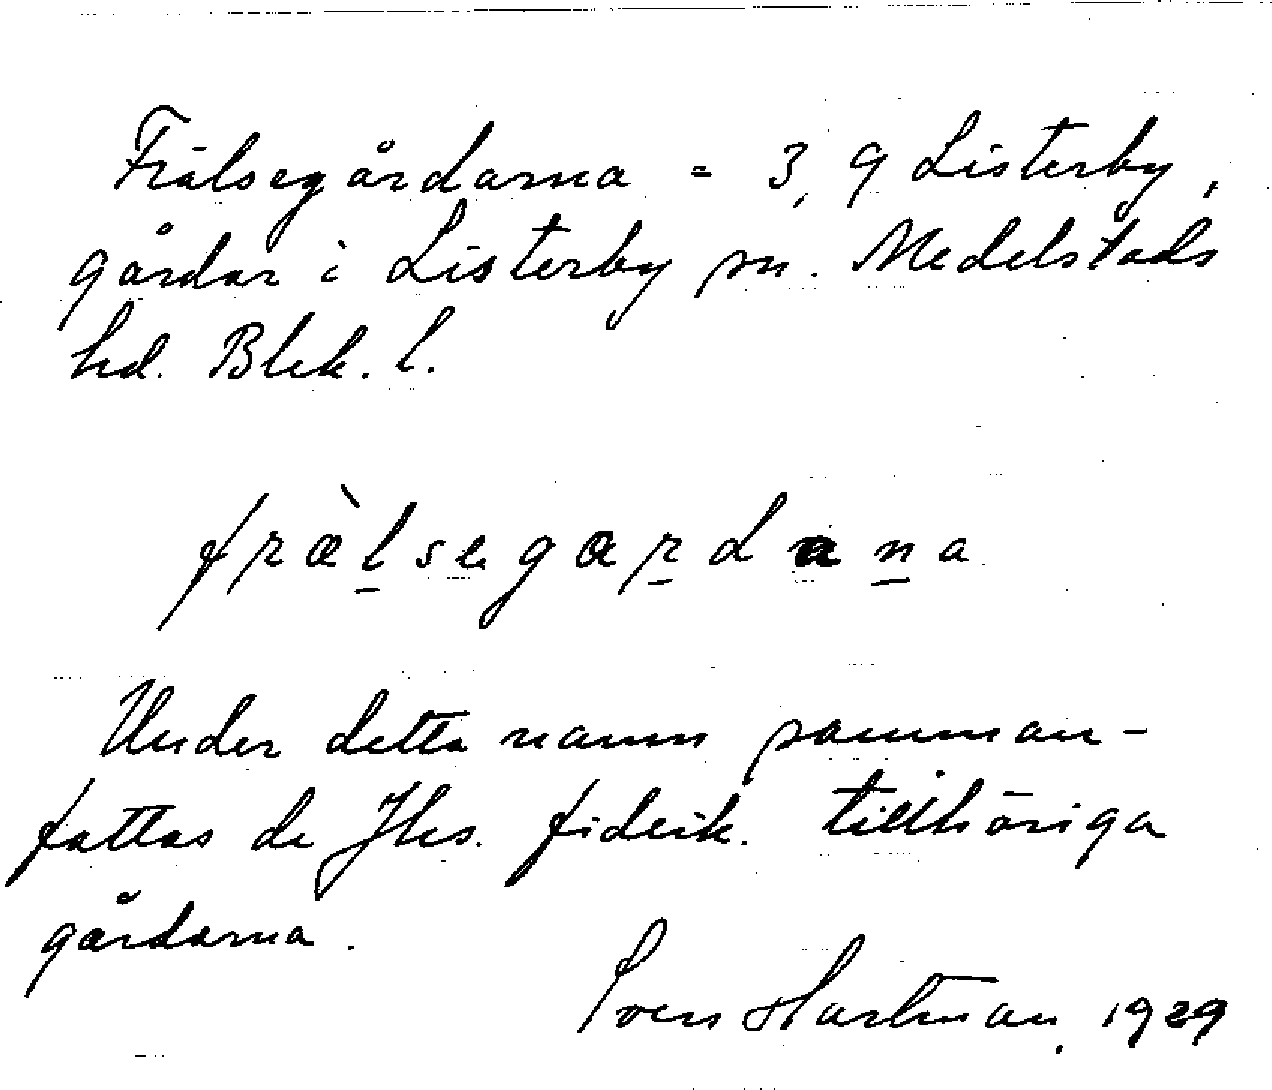 Frälsegårdarna = 3, 9 Listerby,
gårdar i Listerby sn. Medelstads
hd. Blek. l.
fræ̀lsegardana
Under detta namn samman-
fattas de Jhs. fideik. tillhöriga
gårdarna.
Sven Hartman, 1929